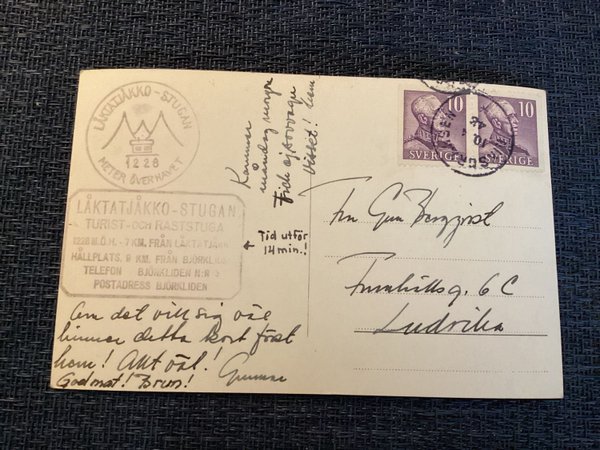 LÅKTATJÅKKO-STUGAN
1228
METER ÖVER HAVET
LÅKTATJÅKKO-STUGAN
TURIST- OCH RASTSTUGA
1228 M.Ö.H. - 7 KM. FRÅN LÅKTATJÅKK
HÅLLPLATS. 9 KM. FRÅN BJÖRKLI
TELEFON BJÖRKLIDEN N:R
POSTADRESS BJÖRKLIDEN
Om det vill sig väl
hinner detta kort först
hem! Allt väl!
Godmat! Brun! Gunnar
Kommer
måndag morgon
Fick ej sovvagn
visset!
← Tid utför
14 min.!
10 10
SVERIGE SVERIGE
Frn Gun Bergqvist
6 C
Ludvika